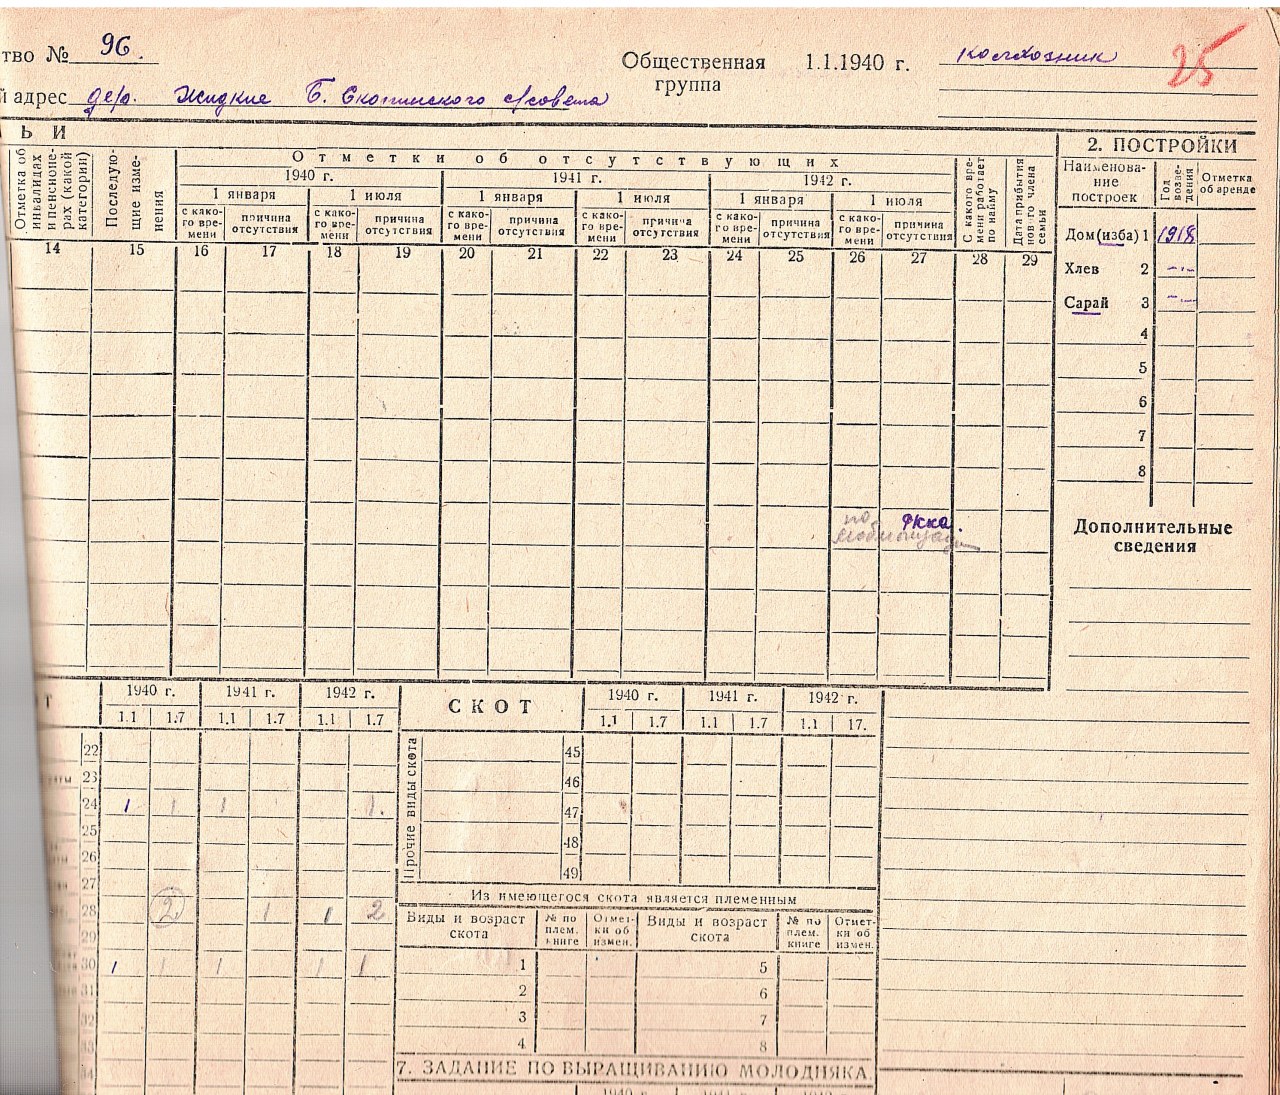 тво № 96.
Общественная группа 1.1.1940 г. колхозник
25
й адрес дер. Жидкие Б. Скопинского с/совета
ЬИ
Отметка об инвалидах и пенсионерах (какой категории)
Последующие изменения
Отметки об отсутствующих
1940 г. 1941 г. 1942 г.
1 января 1 июля 1 января 1 июля 1 января 1 июля
с како-го вре-мени причина отсутствия с како-го вре-мени причина отсутствия с како-го вре-мени причина отсутствия с како-го вре-мени причина отсутствия с како-го вре-мени причина отсутствия с како-го вре-мени причина отсутствия
С какого вре-мени работает по найму
Дата прибытия нового члена семьи
14 15 16 17 18 19 20 21 22 23 24 25 26 27 28 29
по мобилизации РККА.
2. ПОСТРОЙКИ
Наименова-ние построек Год возве-дения Отметка об аренде
Дом (изба) 1 1918
Хлев 2 -"-
Сарай 3 -"-
4
5
6
7
8
Дополнительные
сведения
Т 1940 г. 1941 г. 1942 г.
1.1 1.7 1.1 1.7 1.1 1.7
22
23
24 1 1 1 1.
25
26
27
28 2 1 1 2
29
30 1 1 1 1 1
31
32
33
34
СКОТ 1940 г. 1941 г. 1942 г.
1.1 1.7 1.1 1.7 1.1 17.
Прочие виды скота
45
46
47
48
49
Из имеющегося скота является племенным
Виды и возраст скота № по плем. книге Отмет-ки об измен. Виды и возраст скота № по плем. книге Отмет-ки об измен.
1 5
2 6
3 7
4 8
7. ЗАДАНИЕ ПО ВЫРАЩИВАНИЮ МОЛОДНЯКА
1940 г. 1941 г. 1942 г.